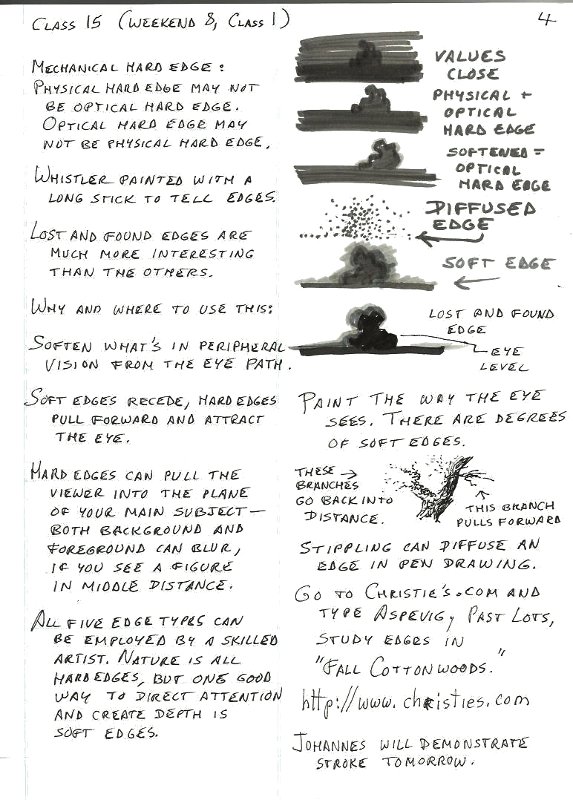 CLASS 15 (WEEKEND 8, CLASS 1)
4
MECHANICAL HARD EDGE:
PHYSICAL HARD EDGE MAY NOT
BE OPTICAL HARD EDGE.
OPTICAL HARD EDGE MAY
NOT BE PHYSICAL HARD EDGE.
WHISTLER PAINTED WITH A
LONG STICK TO TELL EDGES.
LOST AND FOUND EDGES ARE
MUCH MORE INTERESTING
THAN THE OTHERS.
WHY AND WHERE TO USE THIS:
SOFTEN WHAT'S IN PERIPHERAL
VISION FROM THE EYE PATH.
SOFT EDGES RECEDE, HARD EDGES
PULL FORWARD AND ATTRACT
THE EYE.
HARD EDGES CAN PULL THE
VIEWER INTO THE PLANE
OF YOUR MAIN SUBJECT—
BOTH BACKGROUND AND
FOREGROUND CAN BLUR,
IF YOU SEE A FIGURE
IN MIDDLE DISTANCE.
ALL FIVE EDGE TYPES CAN
BE EMPLOYED BY A SKILLED
ARTIST. NATURE IS ALL
HARD EDGES, BUT ONE GOOD
WAY TO DIRECT ATTENTION
AND CREATE DEPTH IS
SOFT EDGES.
VALUES
CLOSE
PHYSICAL +
OPTICAL
HARD EDGE
SOFTENED =
OPTICAL
HARD EDGE
DIFFUSED
EDGE
SOFT EDGE
LOST AND FOUND
EDGE
EYE
LEVEL
PAINT THE WAY THE EYE
SEES. THERE ARE DEGREES
OF SOFT EDGES.
THESE
BRANCHES
GO BACK INTO
DISTANCE.
THIS BRANCH
PULLS FORWARD
STIPPLING CAN DIFFUSE AN
EDGE IN PEN DRAWING.
GO TO CHRISTIE'S.COM AND
TYPE ASPEVIG, PAST LOTS,
STUDY EDGES IN
"FALL COTTONWOODS."
http://www.christies.com
JOHANNES WILL DEMONSTRATE
STROKE TOMORROW.